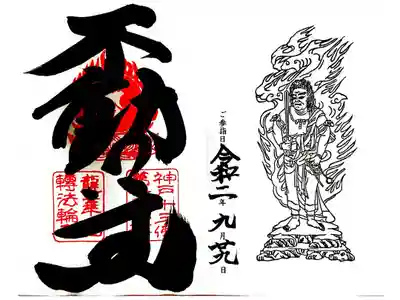 不動
ご参詣日
令和二年九月廿九日
神戸十三佛
龍華
轉法輪